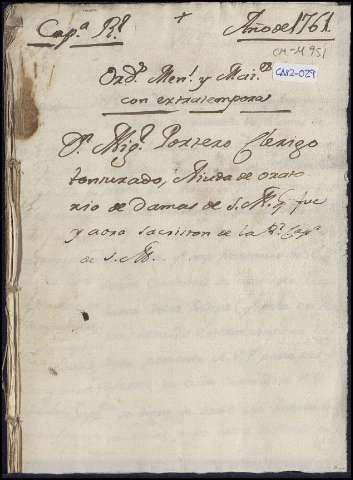 +
Cap.ª R.l Año de 1761.
CM-M 951
CA82-029
Ord.s Men.s y Mai.res
con extratempora
D.n Mig.l Porrero Clerigo
tonsurado, Aiuda de orato
rio de Damas de S.M. q. fue
y aora sacristan de la R.l Cap.a
de S.M.